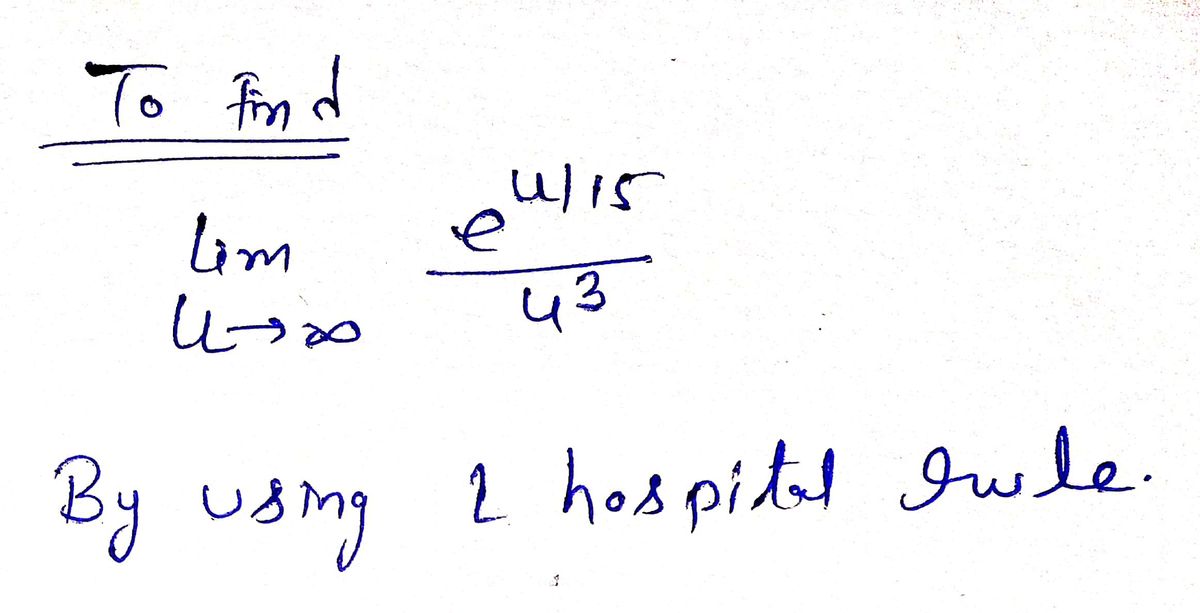 To find
lim e^{u/15} / u^3
u→∞
By using L hospital rule.